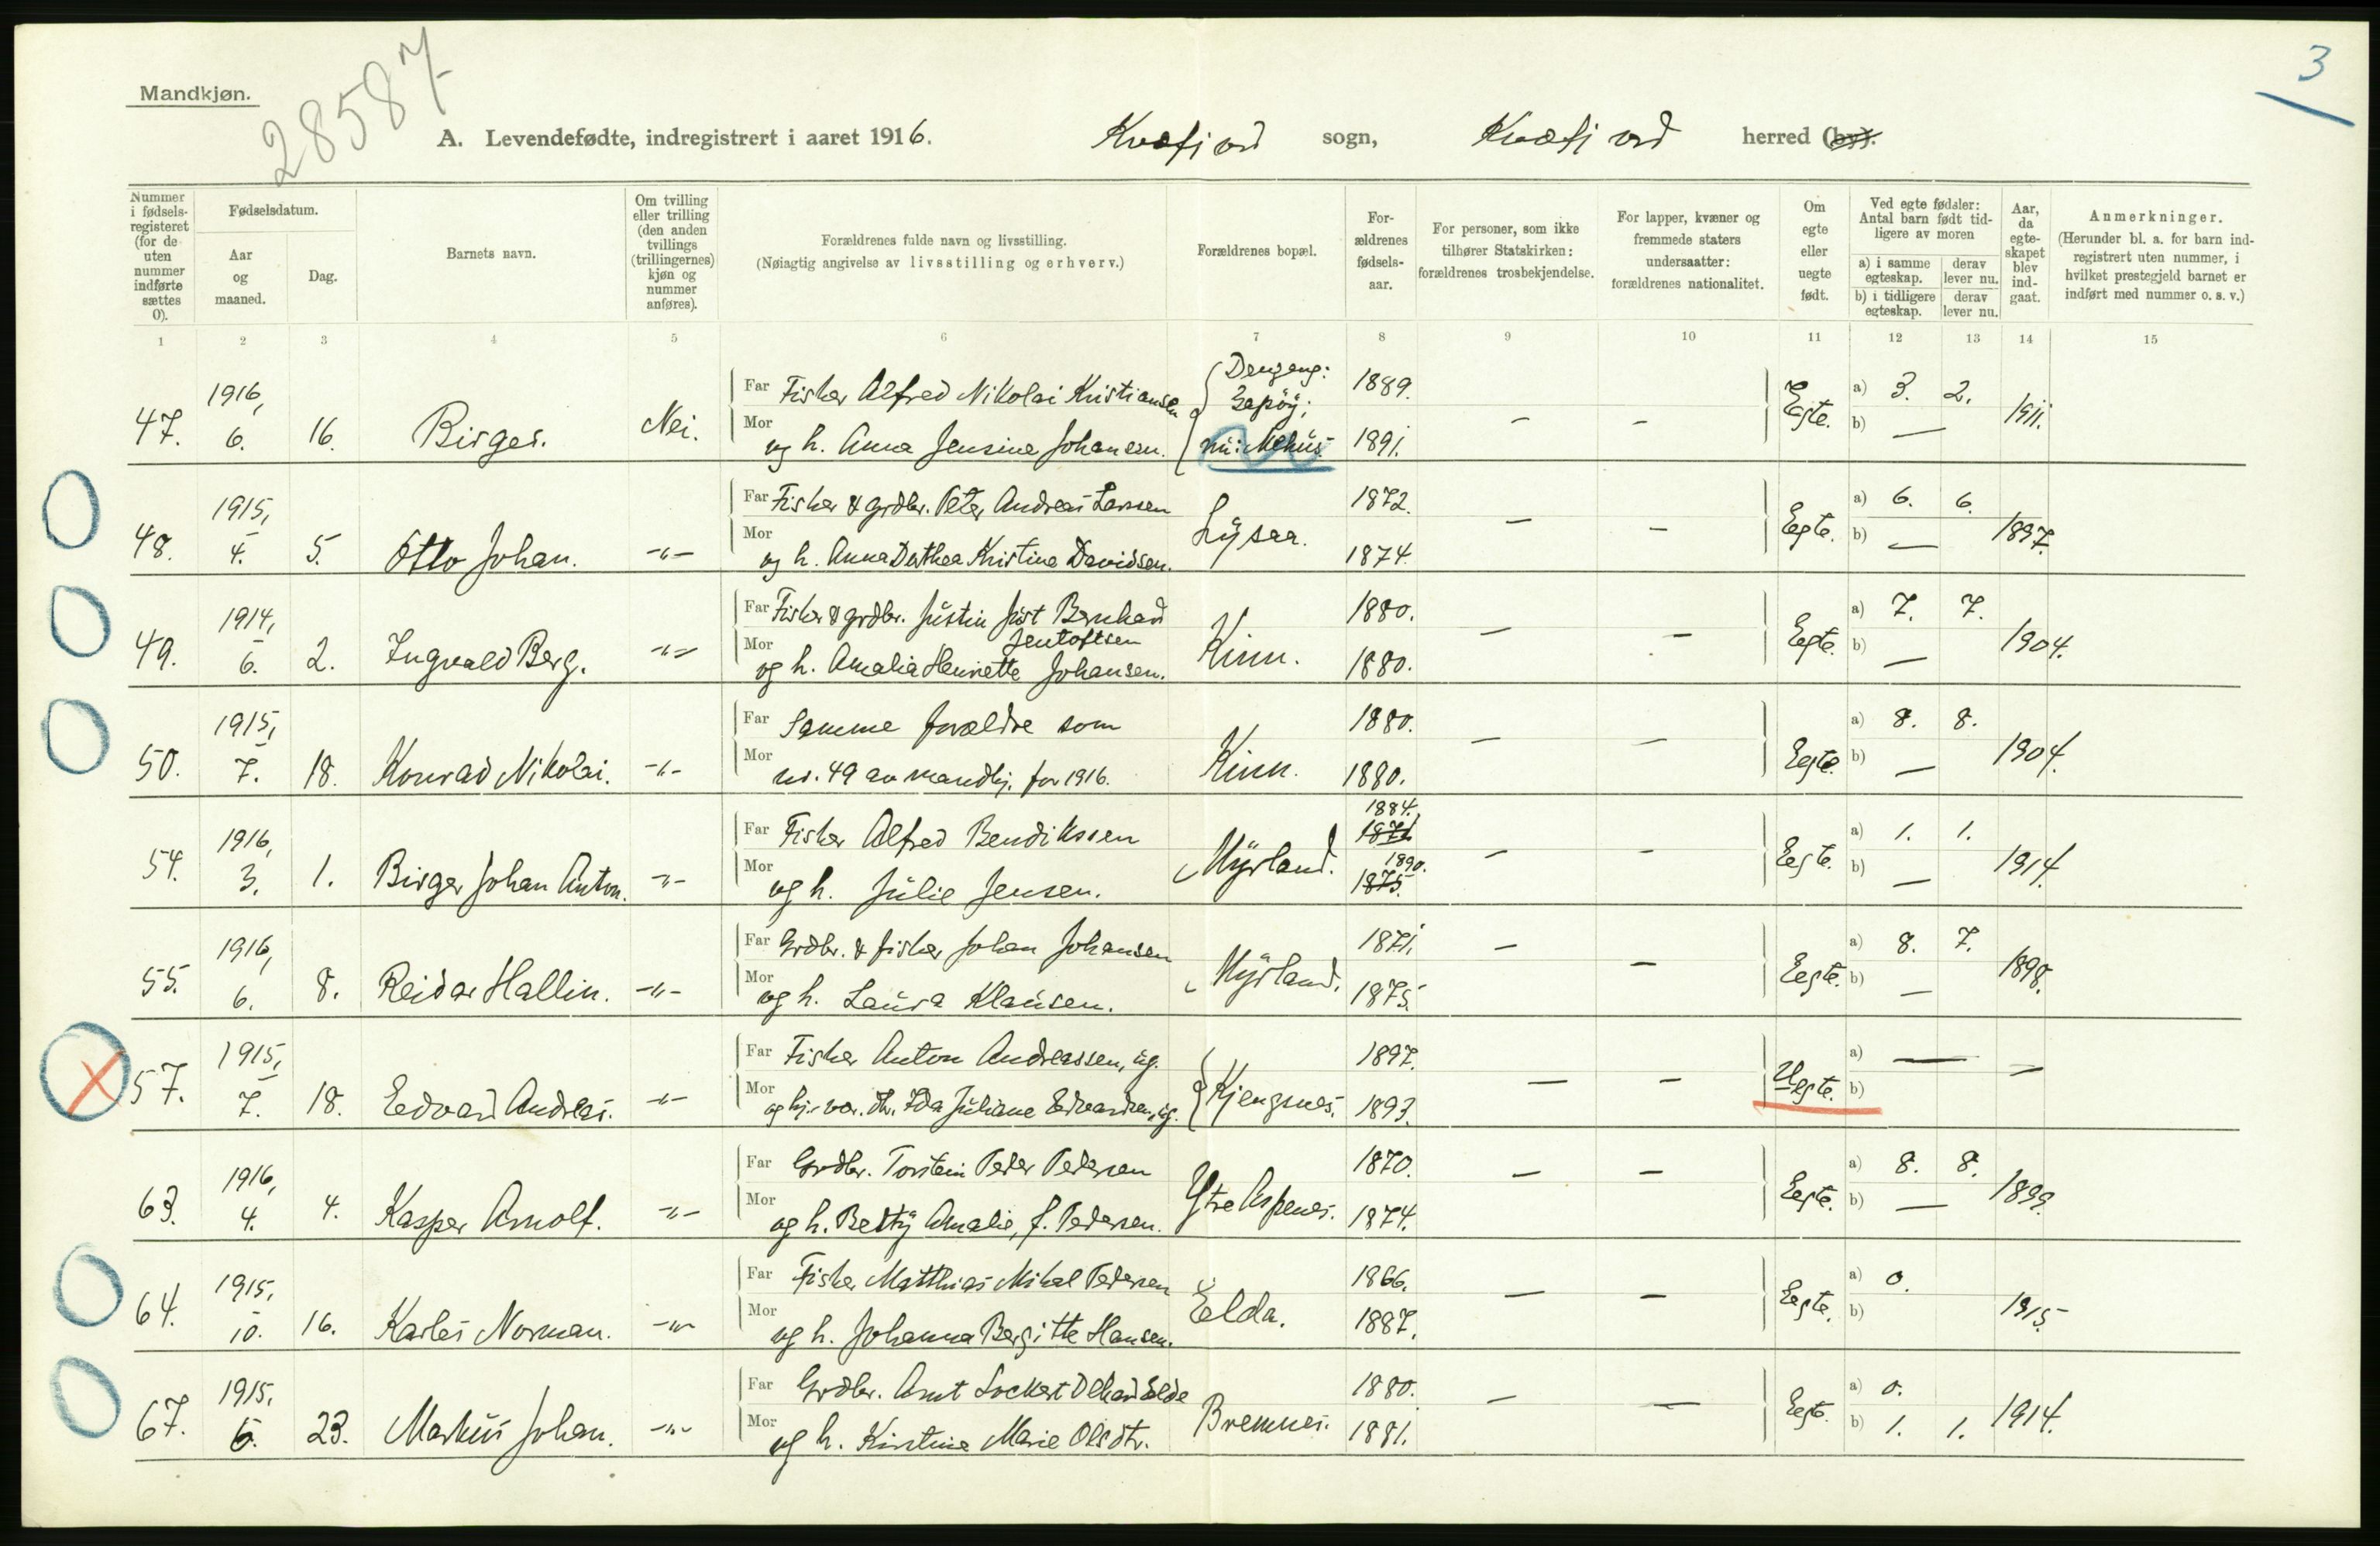 3
28587
Mandkjøn.
A. Levendefødte, indregistrert i aaret 1916. Kvæfjord sogn, Kvæfjord herred (by).
Nummer i fødselsregisteret (for de uten nummer indførte sættes 0).
Fødselsdatum.
Aar og maaned.
Dag.
Barnets navn.
Om tvilling eller trilling (den anden tvillings (trillingernes) kjøn og nummer anføres).
Forældrenes fulde navn og livsstilling.
(Nøiagtig angivelse av livsstilling og erhverv.)
Forældrenes bopæl.
Forældrenes fødselsaar.
For personer, som ikke tilhører Statskirken: forældrenes trosbekjendelse.
For lapper, kvæner og fremmede staters undersaatter: forældrenes nationalitet.
Om egte eller uegte født.
Ved egte fødsler: Antal barn født tidligere av moren
a) i samme egteskap. derav lever nu.
b) i tidligere egteskap. derav lever nu.
Aar, da egteskapet blev indgaat.
Anmerkninger.
(Herunder bl. a. for barn indregistrert uten nummer, i hvilket prestegjeld barnet er indført med nummer o. s. v.)
1 2 3 4 5 6 7 8 9 10 11 12 13 14 15
47. 1916, 6. 16. Birger. Nei.
Far Fisker Alfred Nikolai Kristiansen
Mor og h. Anna Jensine Johansen.
Dengang:
nu: Mehus. 1889. 1891. - - Egte. a) 3. 2. b) — 1911.
48. 1915, 4. 5. Otto Johan. -"-
Far Fisker & grdbr. Peter Andreas Larssen
Mor og h. Anna Dorthea Kristine Davidsen.
Lysaa. 1872. 1874. - - Egte. a) 6. 6. b) — 1897.
49. 1914, 6. 2. Ingvald Berg. -"-
Far Fisker & grdbr. Justin Just Bernhard Jentoftsen
Mor og h. Amalia Henriette Johansen.
Kinn. 1880. 1880. - - Egte. a) 7. 7. b) — 1904.
50. 1915, 7. 18. Konrad Nikolai. -"-
Far Samme forældre som
Mor nr. 49 av mandkj. for 1916.
Kinn. 1880. 1880. - - Egte. a) 8. 8. b) — 1904.
54. 1916, 3. 1. Birger Johan Anton. -"-
Far Fisker Alfred Bendikssen
Mor og h. Julie Jensen.
Myrland. 1884. 1871 1890. 1875. - - Egte. a) 1. 1. b) — 1914.
55. 1916, 6. 8. Reidar Hallin. -"-
Far Grdbr. & fisker Johan Johansen
Mor og h. Laura Klausen.
Myrland. 1871. 1875. - - Egte. a) 8. 7. b) — 1898.
57. 1915, 7. 18. Edvard Andreas. -"-
Far Fisker Anton Andreassen, ug.
Mor og hj. vær. dtr. Ida Juliane Edvardsen, ug.
Kjengsnes. 1897. 1893. - - Uegte. a) — b) —
63. 1916, 4. 4. Kasper Arnolf. -"-
Far Grdbr. Torstein Peder Pedersen
Mor og h. Betty Amalie, f. Pedersen.
Ytre Aspenes. 1870. 1874. - - Egte. a) 8. 8. b) — 1899.
64. 1915, 10. 16. Karles Norman. -"-
Far Fisker Matthias Mikal Pedersen
Mor og h. Johanna Bergitte Hansen.
Elda. 1866. 1887. - - Egte. a) 0. b) 1915.
67. 1915, 6. 23. Markus Johan. -"-
Far Grdbr. Arnt Lockert Elde
Mor og h. Kirstine Marie Olsdtr.
Bremnes. 1880. 1881. - - Egte. a) 0. b) 1. 1. 1914.